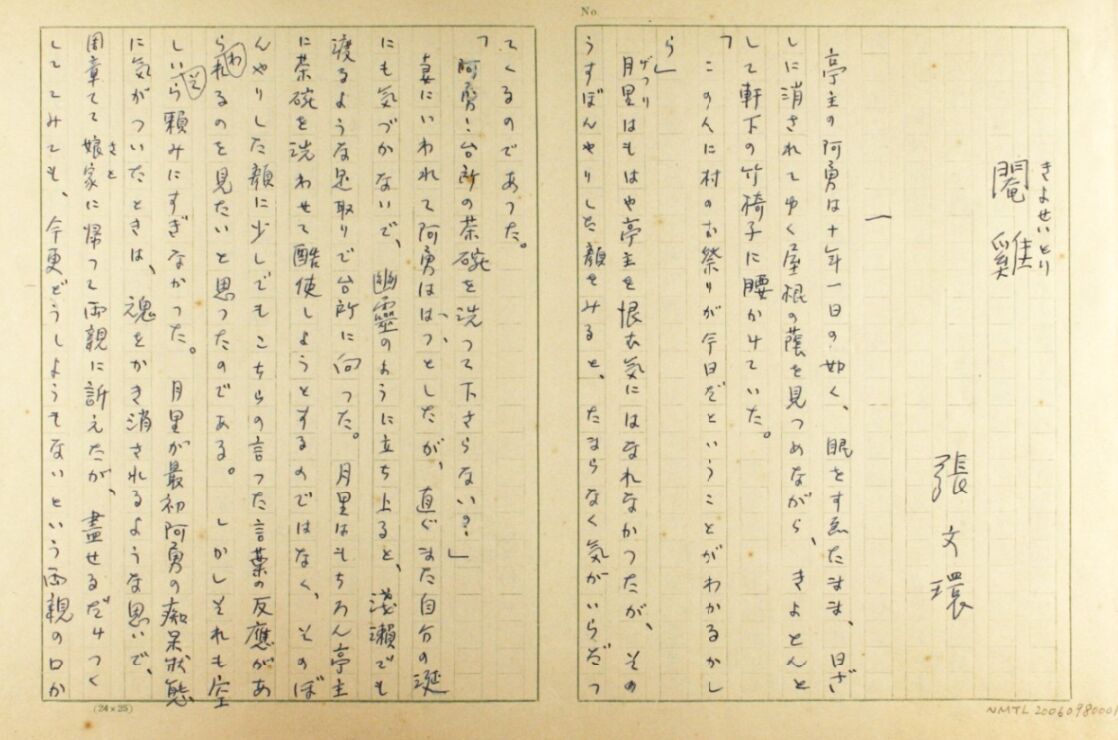 No
きよせいとり
閹雞
張文環
一
亭主の阿勇は十年一日の如く、眼をすゑたまま、日ざ
しに消されてゆく屋根の蔭を見つめながら、きよとんと
して軒下の竹椅子に腰かけていた。
「このんに村のお祭りが今日だということがわかるかし
ら」
げつり
月里はもはや亭主を恨む気にはなれなかつたが、その
うすぼんやりした顔をみると、たまらなく気がいらだつ
てくるのであつた。
「阿勇！台所の茶碗を洗つて下さらない？」
妻にいわれて阿勇ははつとしたが、直ぐまた自分の涎
にも気づかないで、幽靈のように立ち上ると、浅瀬でも
渡るような足取りで台所に向つた。月里はもちろん亭主
に茶碗を洗わせて酷使しようとするのではなく、そのぼ
んやりした顔に少しでもこちらの言つた言葉の反應があ
らわれるのを見たいと思つたのである。しかしそれも空
しいそら頼みにすぎなかつた。月里が最初阿勇の痴呆状態
に気がついたときは、魂をかき消されるような思いで、
さと
周章てて娘家に帰つて両親に訴えたが、盡せるだけつく
してみても、今更どうしようもないという両親の口か
(24×25)
NMTL 20060980001